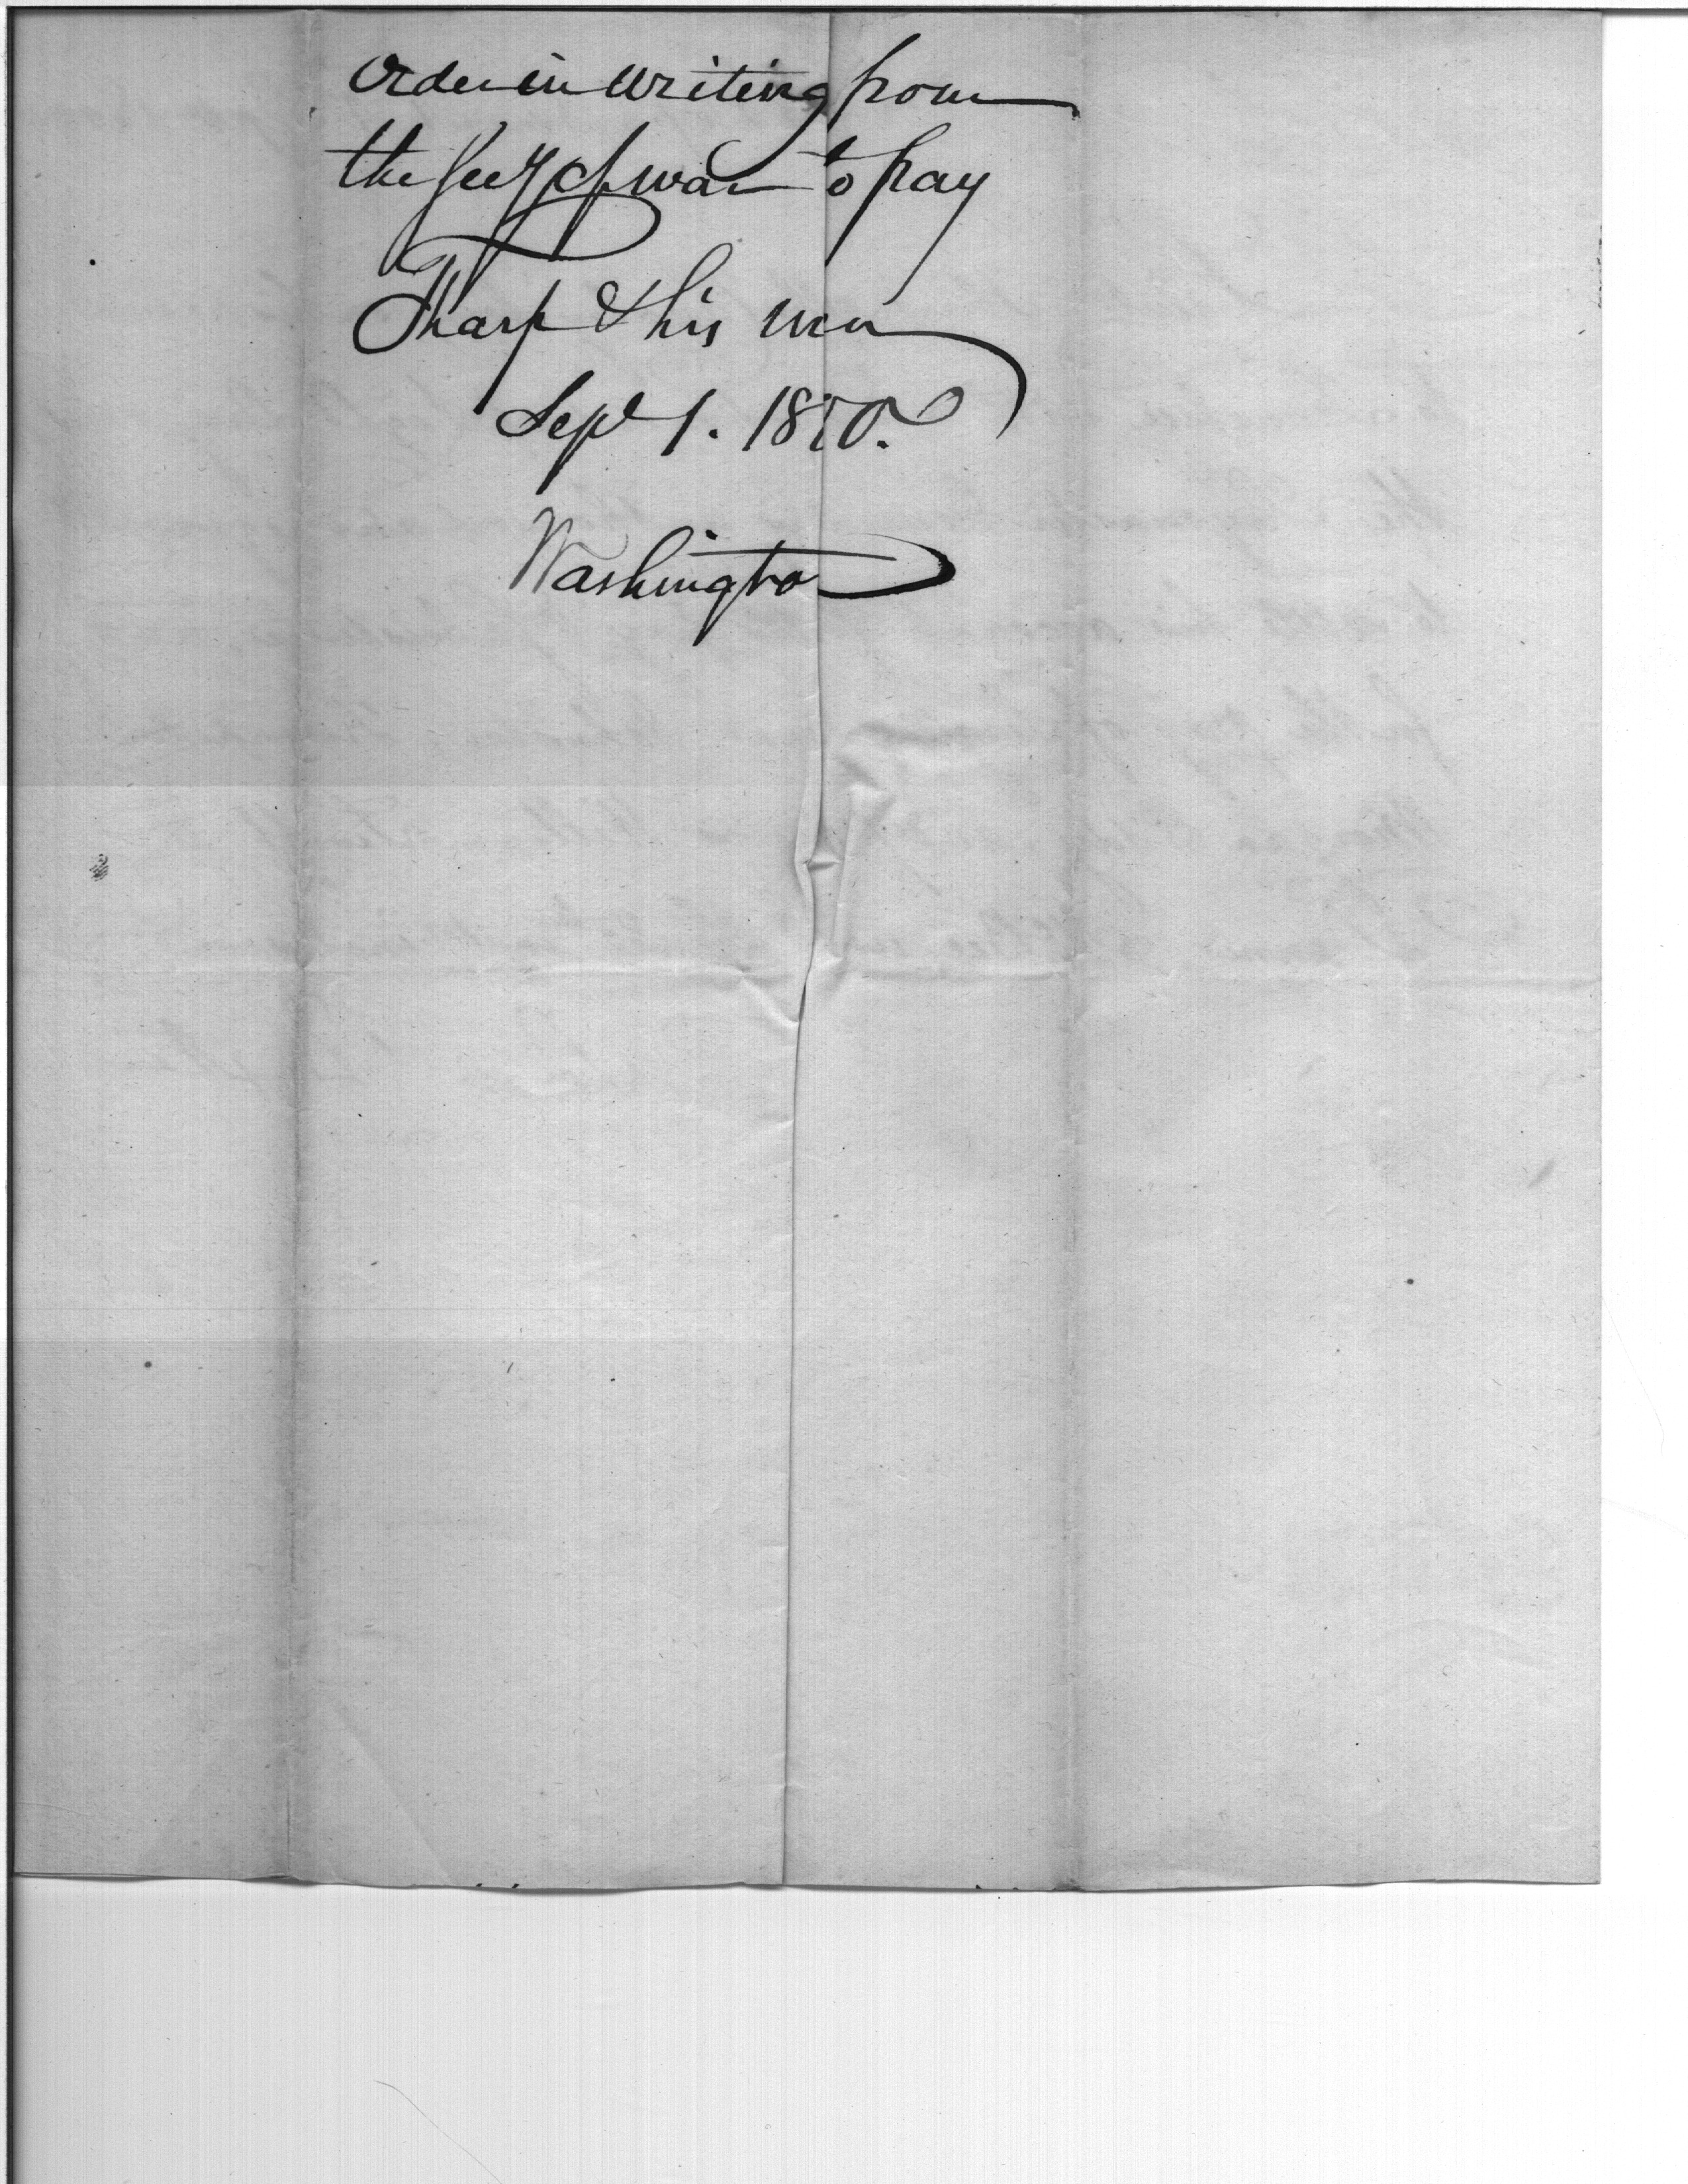 Order in writing from
the Secy of war to pay
Tharp & his men
Sept 1. 1870.
Washington